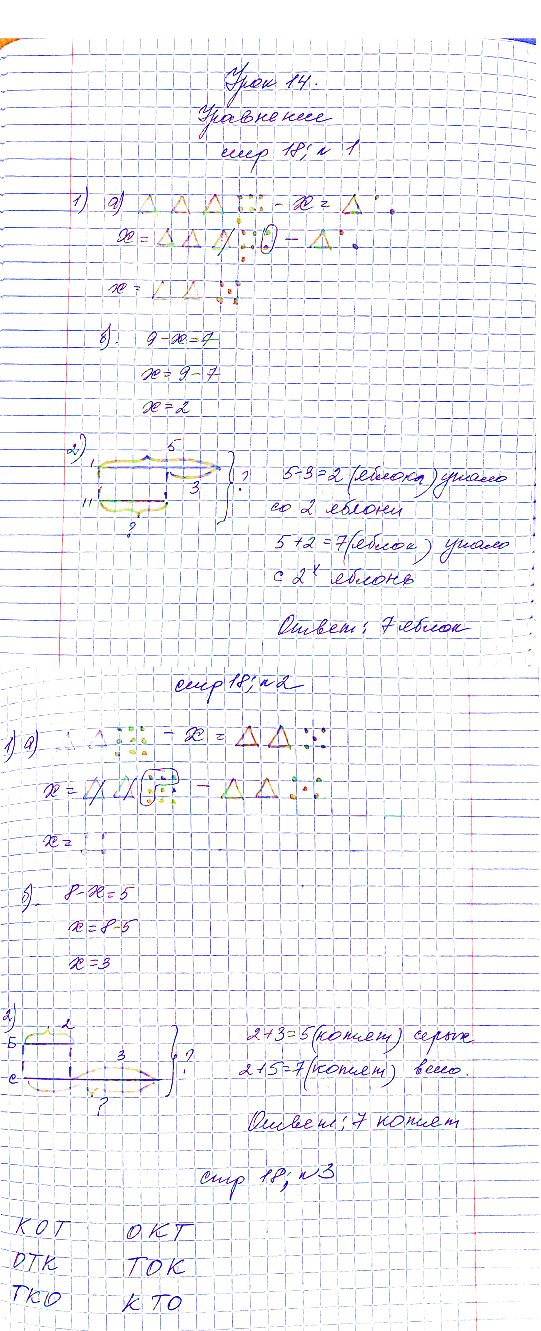 Урок 14.
Уравнение
стр 18; № 1
1) а) - x =
x = -
x =
б). 9-x=7
x=9-7
x=2
2) 5
I 3 ?
II
?
5-3=2 (яблока) упало
со 2 яблони
5+2=7(яблок) упало
с 2х яблонь
Ответ: 7 яблок
стр 18; № 2
1) а) - x =
x = -
x =
б) 8-x=5
x=8-5
x=3
2) 2
Б
3 ?
С
?
2+3=5 (котят) серых
2+5=7(котят) всего.
Ответ: 7 котят
стр 18; № 3
КОТ ОКТ
ОТК ТОК
ТКО КТО